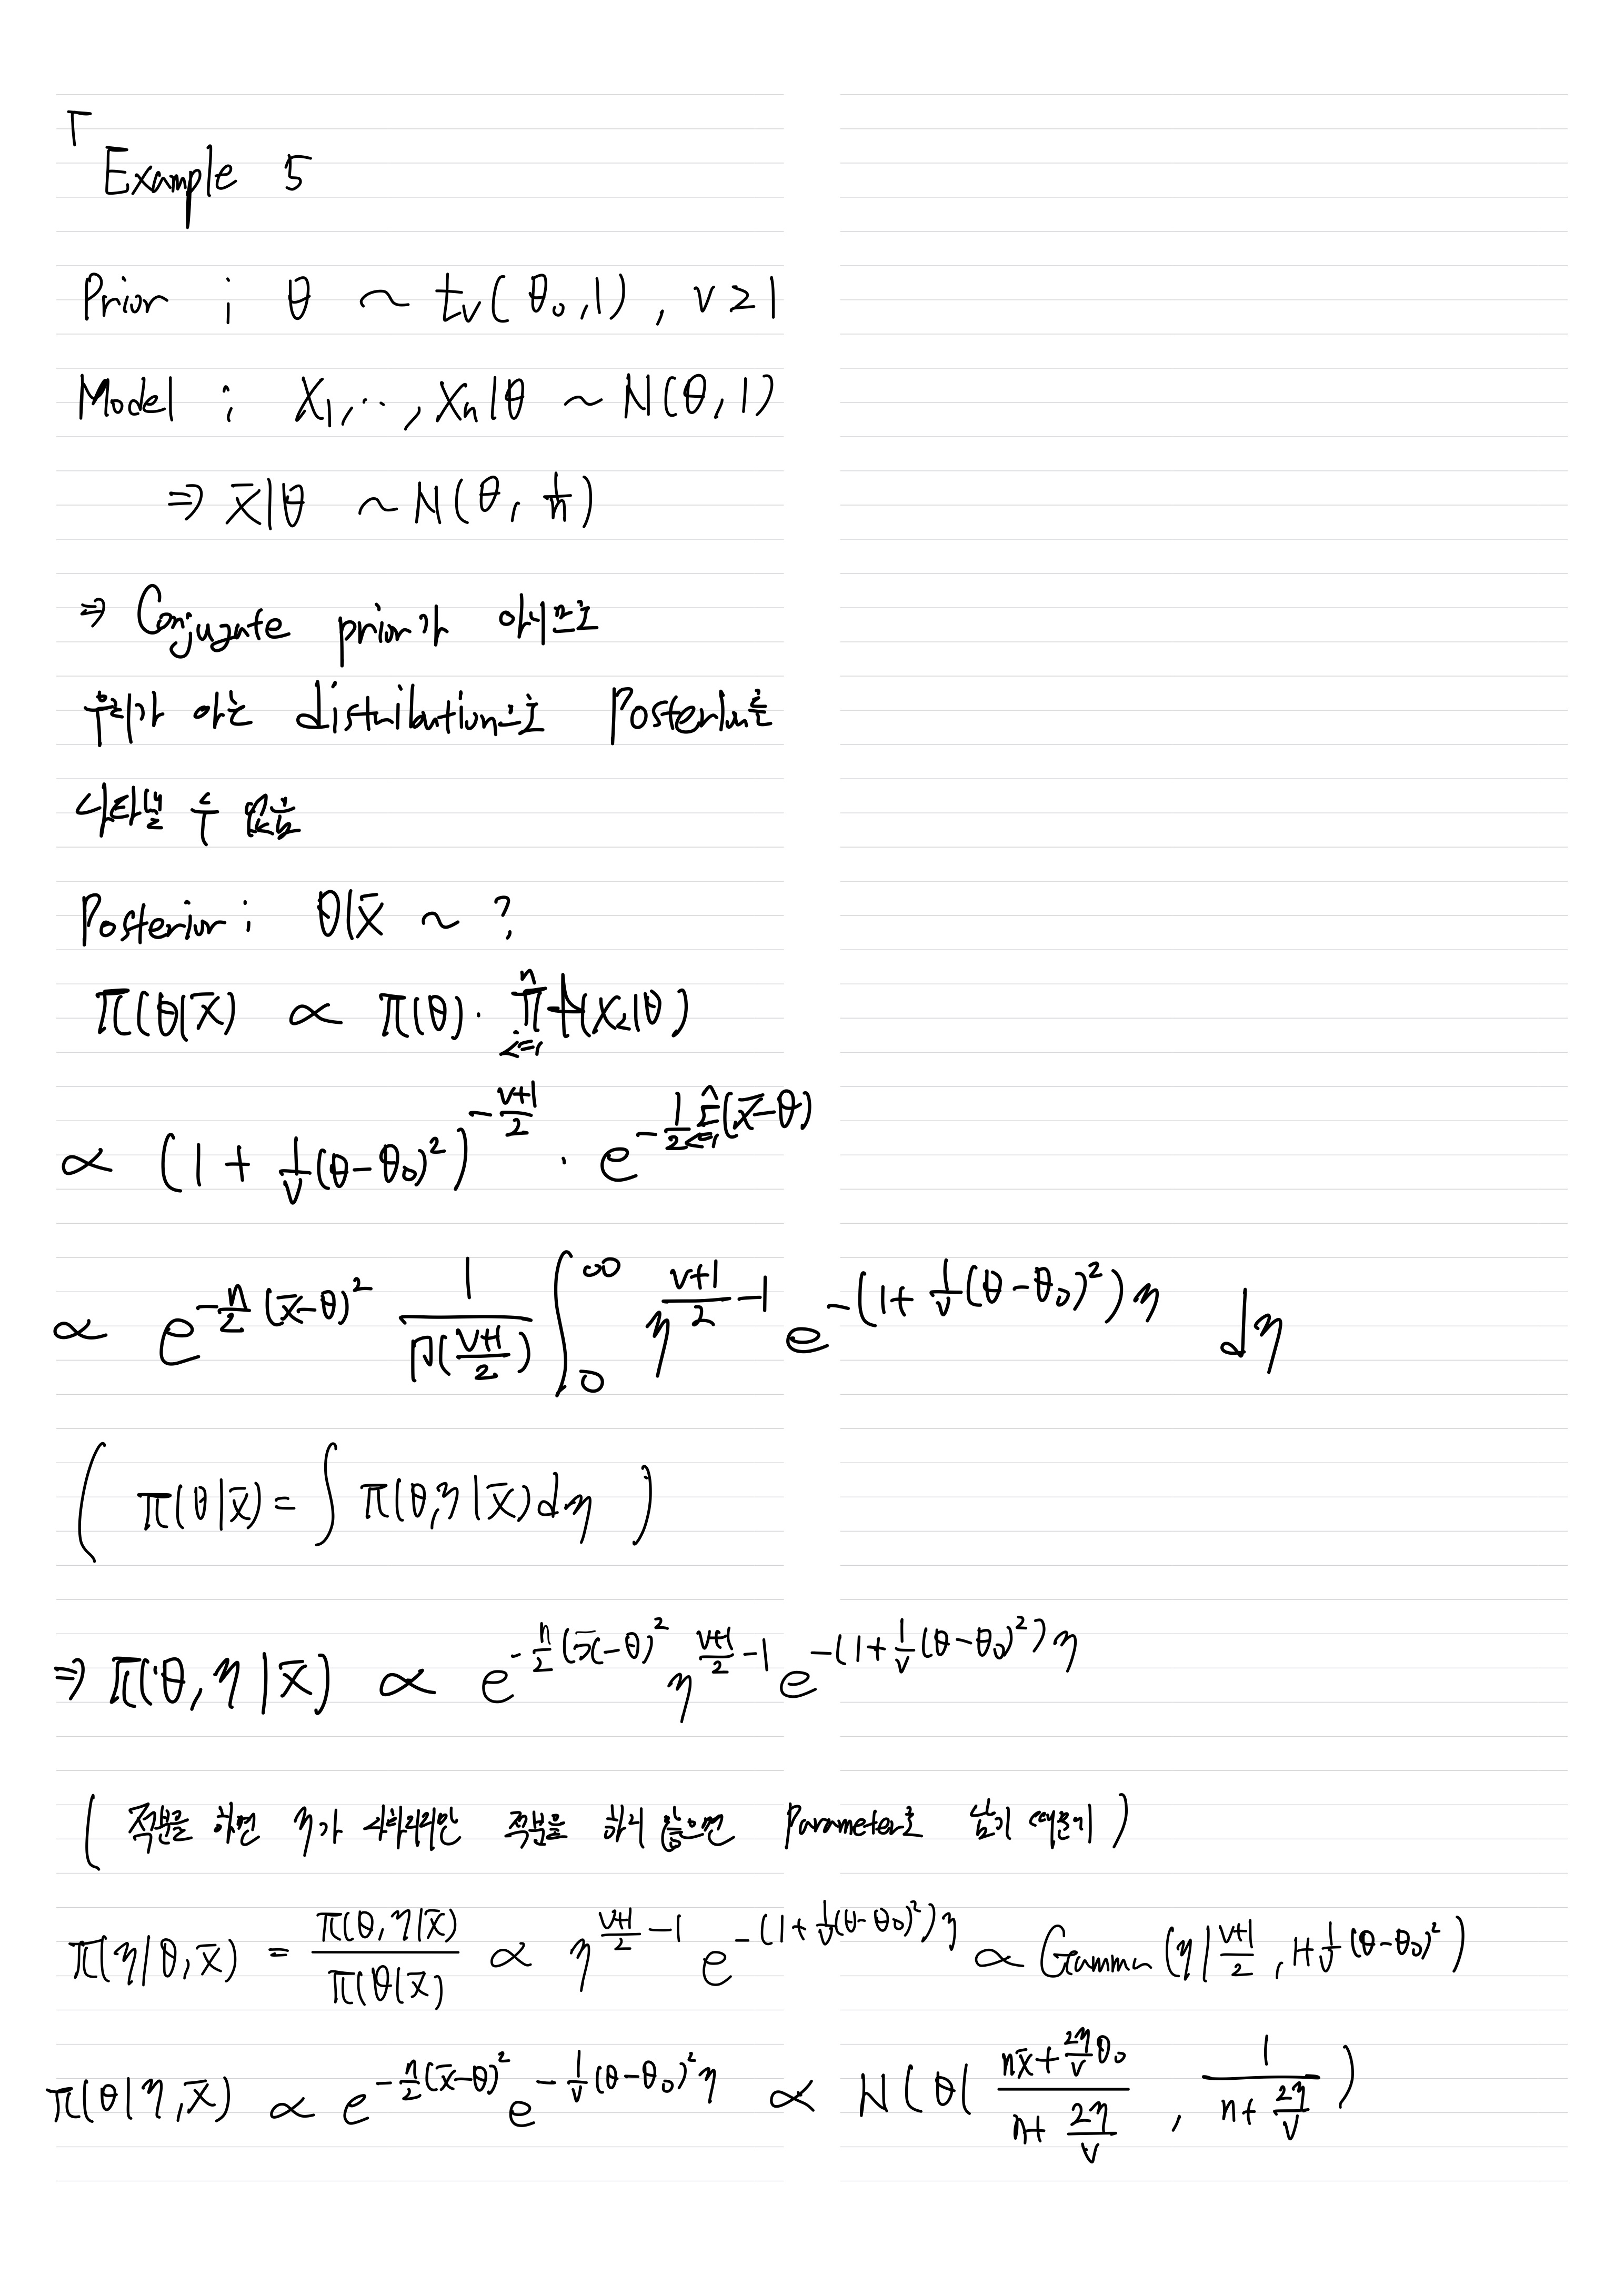 Example 5
Prior ; θ ~ t_v(θ₀, 1), v ≥ 1
Model ; X₁, ‥, Xₙ|θ ~ N(θ, 1)
⇒ x̄|θ ~ N(θ, 1/n)
⇒ Conjugate prior가 아니므로
우리가 아는 distribution으로 Posterior를
나타낼 수 없음
Posterior ; θ|x̄ ~ ?
π(θ|x̄) ∝ π(θ)· ∏_{i=1}^{n} f(x_i|θ)
∝ (1 + 1/v (θ-θ₀)²)^{-(v+1)/2} · e^{-1/2 Σ_{i=1}^{n}(x̄-θ)}
∝ e^{-n/2 (x̄-θ)²} 1/Γ((v+1)/2) ∫₀^∞ η^{(v+1)/2 -1} e^{-(1+ 1/v (θ-θ₀)²)η} dη
( π(θ|x̄) = ∫ π(θ,η|x̄)dη )
⇒ π(θ,η|x̄) ∝ e^{-n/2 (x̄-θ)²} η^{(v+1)/2 -1} e^{-(1+ 1/v (θ-θ₀)²)η}
( 적분을 하면 η가 사라지지만 적분을 하지 않으면 Parameter로 남기 때문에 )
π(η|θ,x̄) = π(θ,η|x̄)/π(θ|x̄) ∝ η^{(v+1)/2 -1} e^{-(1+ 1/v (θ-θ₀)²)η} ∝ Gamma(η| (v+1)/2 , 1+ 1/v (θ-θ₀)²)
π(θ|η,x̄) ∝ e^{-n/2 (x̄-θ)²} e^{-1/v (θ-θ₀)²η} ∝ N(θ| (nx̄+ 2η/v θ₀)/(n+ 2η/v) , 1/(n+ 2η/v))